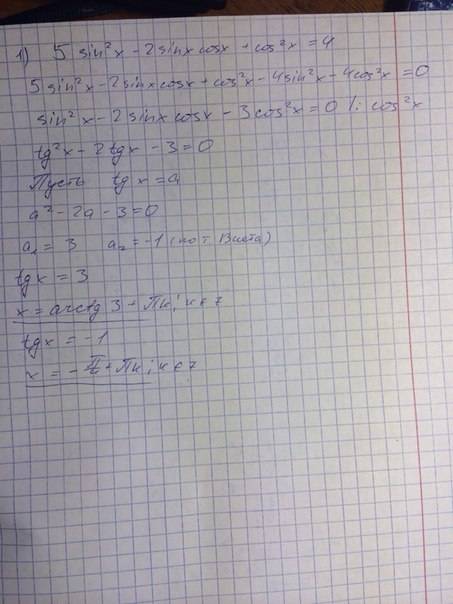 1) 5 sin²x - 2sinx cosx + cos²x = 4
5 sin²x - 2sinx cosx + cos²x - 4sin²x - 4cos²x = 0
sin²x - 2sinx cosx - 3cos²x = 0 |: cos²x
tg²x - 2tgx - 3 = 0
Пусть tgx = a
a² - 2a - 3 = 0
a₁ = 3 a₂ = -1 (по т Виета)
tgx = 3
x = arctg 3 + Пк; к ∈ z
tgx = -1
x = - П/4 + Пк; к ∈ z